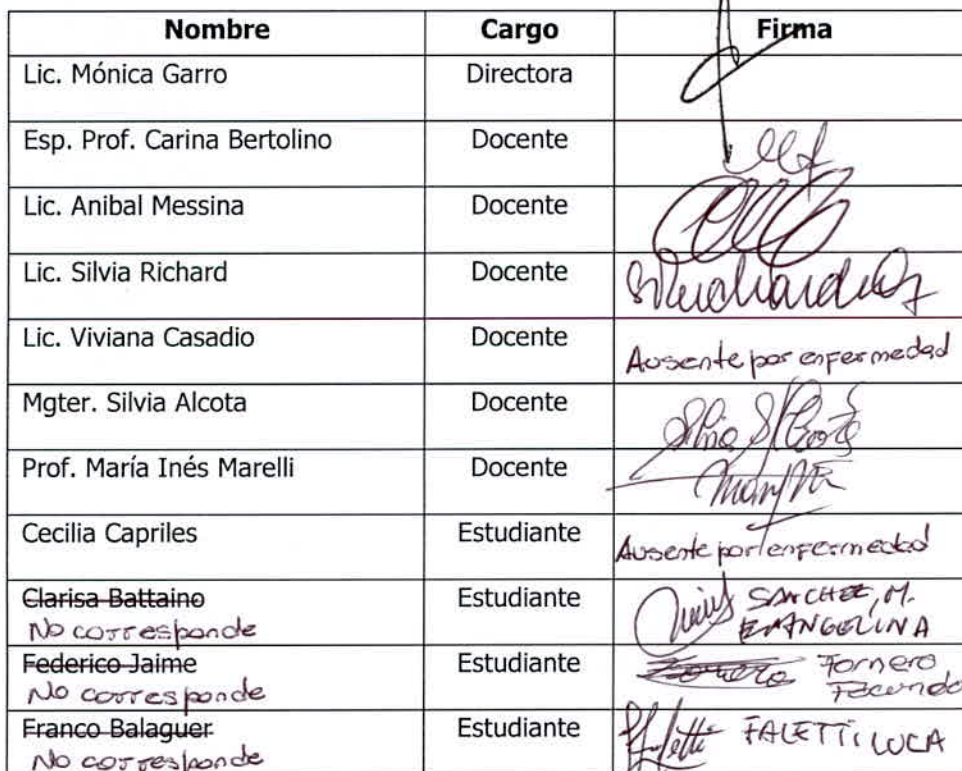 Nombre Cargo Firma
Lic. Mónica Garro Directora
Esp. Prof. Carina Bertolino Docente
Lic. Anibal Messina Docente
Lic. Silvia Richard Docente
Lic. Viviana Casadio Docente Ausente por enfermedad
Mgter. Silvia Alcota Docente
Prof. María Inés Marelli Docente
Cecilia Capriles Estudiante Ausente por enfermedad
Clarisa Battaino Estudiante SANCHEZ, M.
No corresponde EVANGELINA
Federico Jaime Estudiante Fornero
No corresponde Facundo
Franco Balaguer Estudiante FALETTI LUCA
No corresponde